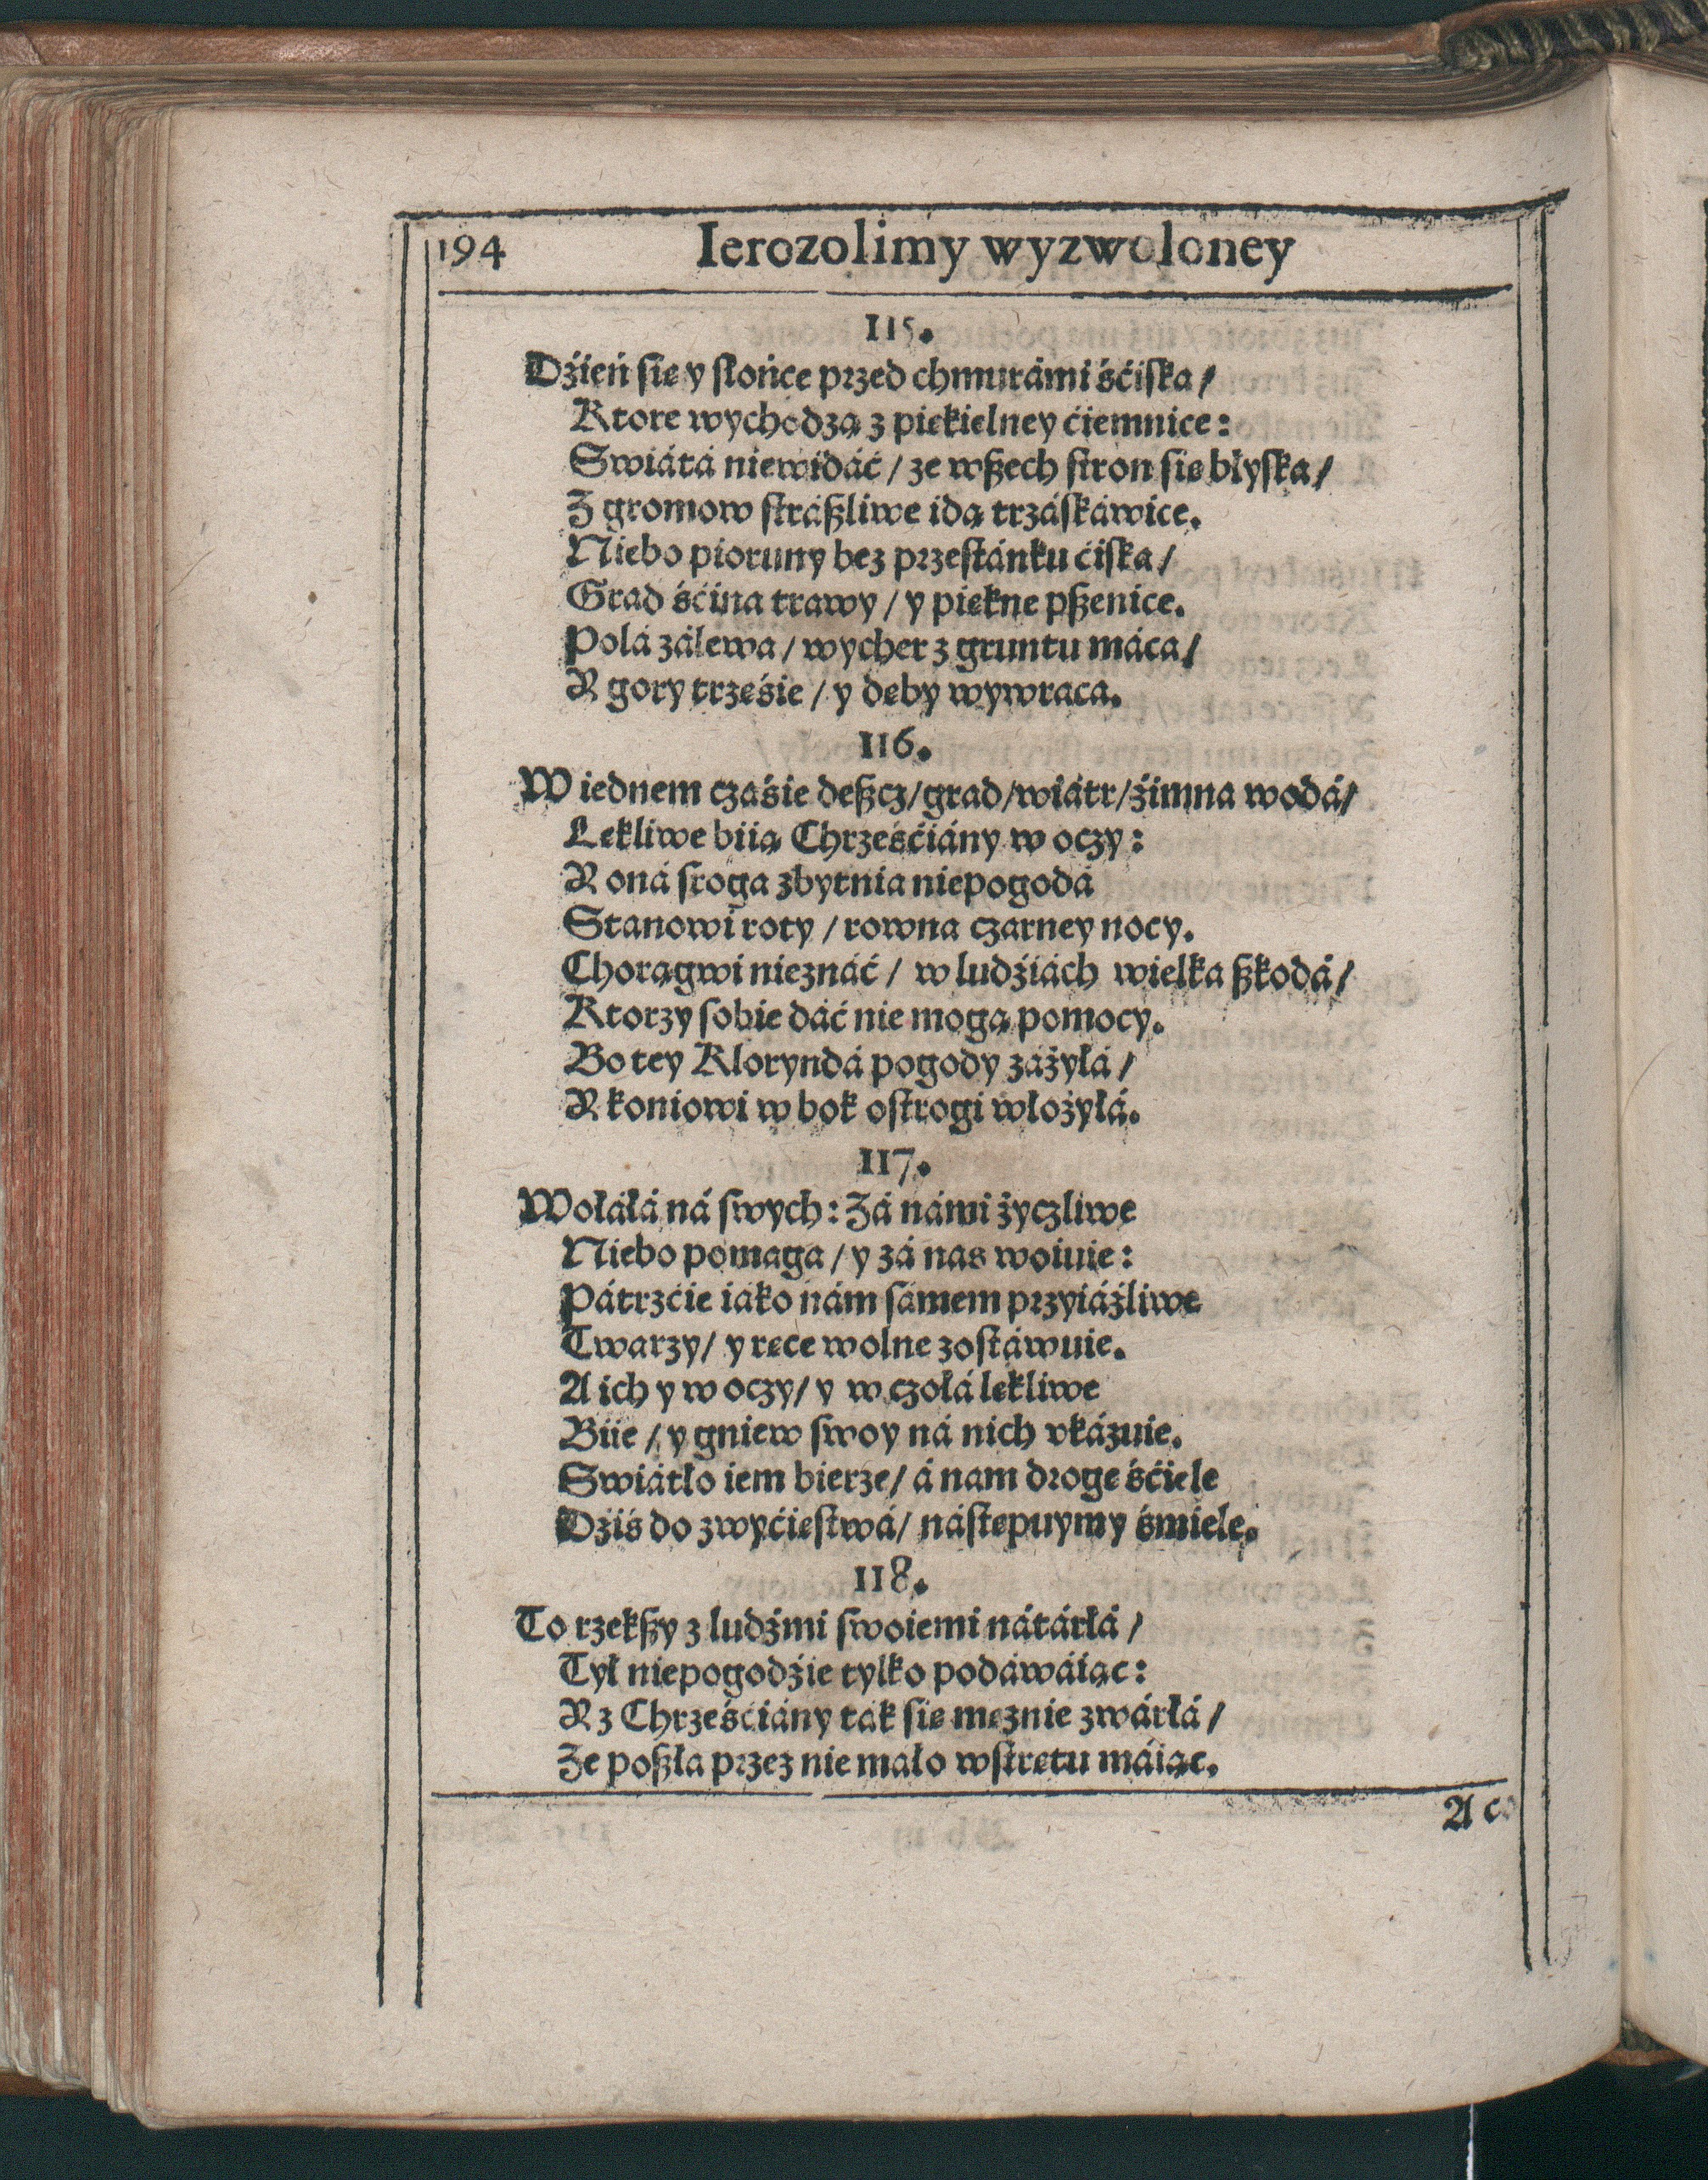 194 Ierozolimy wyzwoloney
115.
Dźień się y słońce przed chmurámi śćiska/
Ktore wychodzą z piekielney ćiemnice:
Swiátá niewidáć/ ze wßech stron się błyska/
Z gromow stráßliwe idą trzáskáwice.
Niebo pioruny bez przestánku ćiska/
Grad śćina trawy/ y piękne pßenice.
Polá zálewa/ wycher z gruntu máca/
Y gory trzęśie/ y dęby wywraca.
116.
W iednem czáśie deßcz/grad/wiátr/źimna wodá/
Lękliwe biią Chrześćiány w oczy:
Y oná sroga zbytnia niepogodá
Stanowi roty/ rowna czarney nocy.
Chorągwi nieznáć/ w ludźiách wielka ßkodá/
Ktorzy sobie dáć nie mogą pomocy.
Bo tey Kloryndá pogody záżyłá/
Y koniowi w bok ostrogi włożyłá.
117.
Wołáłá ná swych: Zá námi życzliwe
Niebo pomaga/ y zá nas woiuie:
Pátrzćie iáko nám sámem przyiáźliwe
Twarzy/ y ręce wolne zostáwuie.
A ich y w oczy/ y w czołá lękliwe
Biie/ y gniew swoy ná nich vkázuie.
Swiátło iem bierze/ á nam drogę śćiele
Dźiś do zwyćięstwá/ nástępuymy śmiele.
118.
To rzekßy z ludźmi swoiemi nátárłá/
Tył niepogodźie tylko podáwáiąc:
Y z Chrześćiány ták się mężnie zwárłá/
Ze poßła przez nie máło wstrętu máiąc.
A co